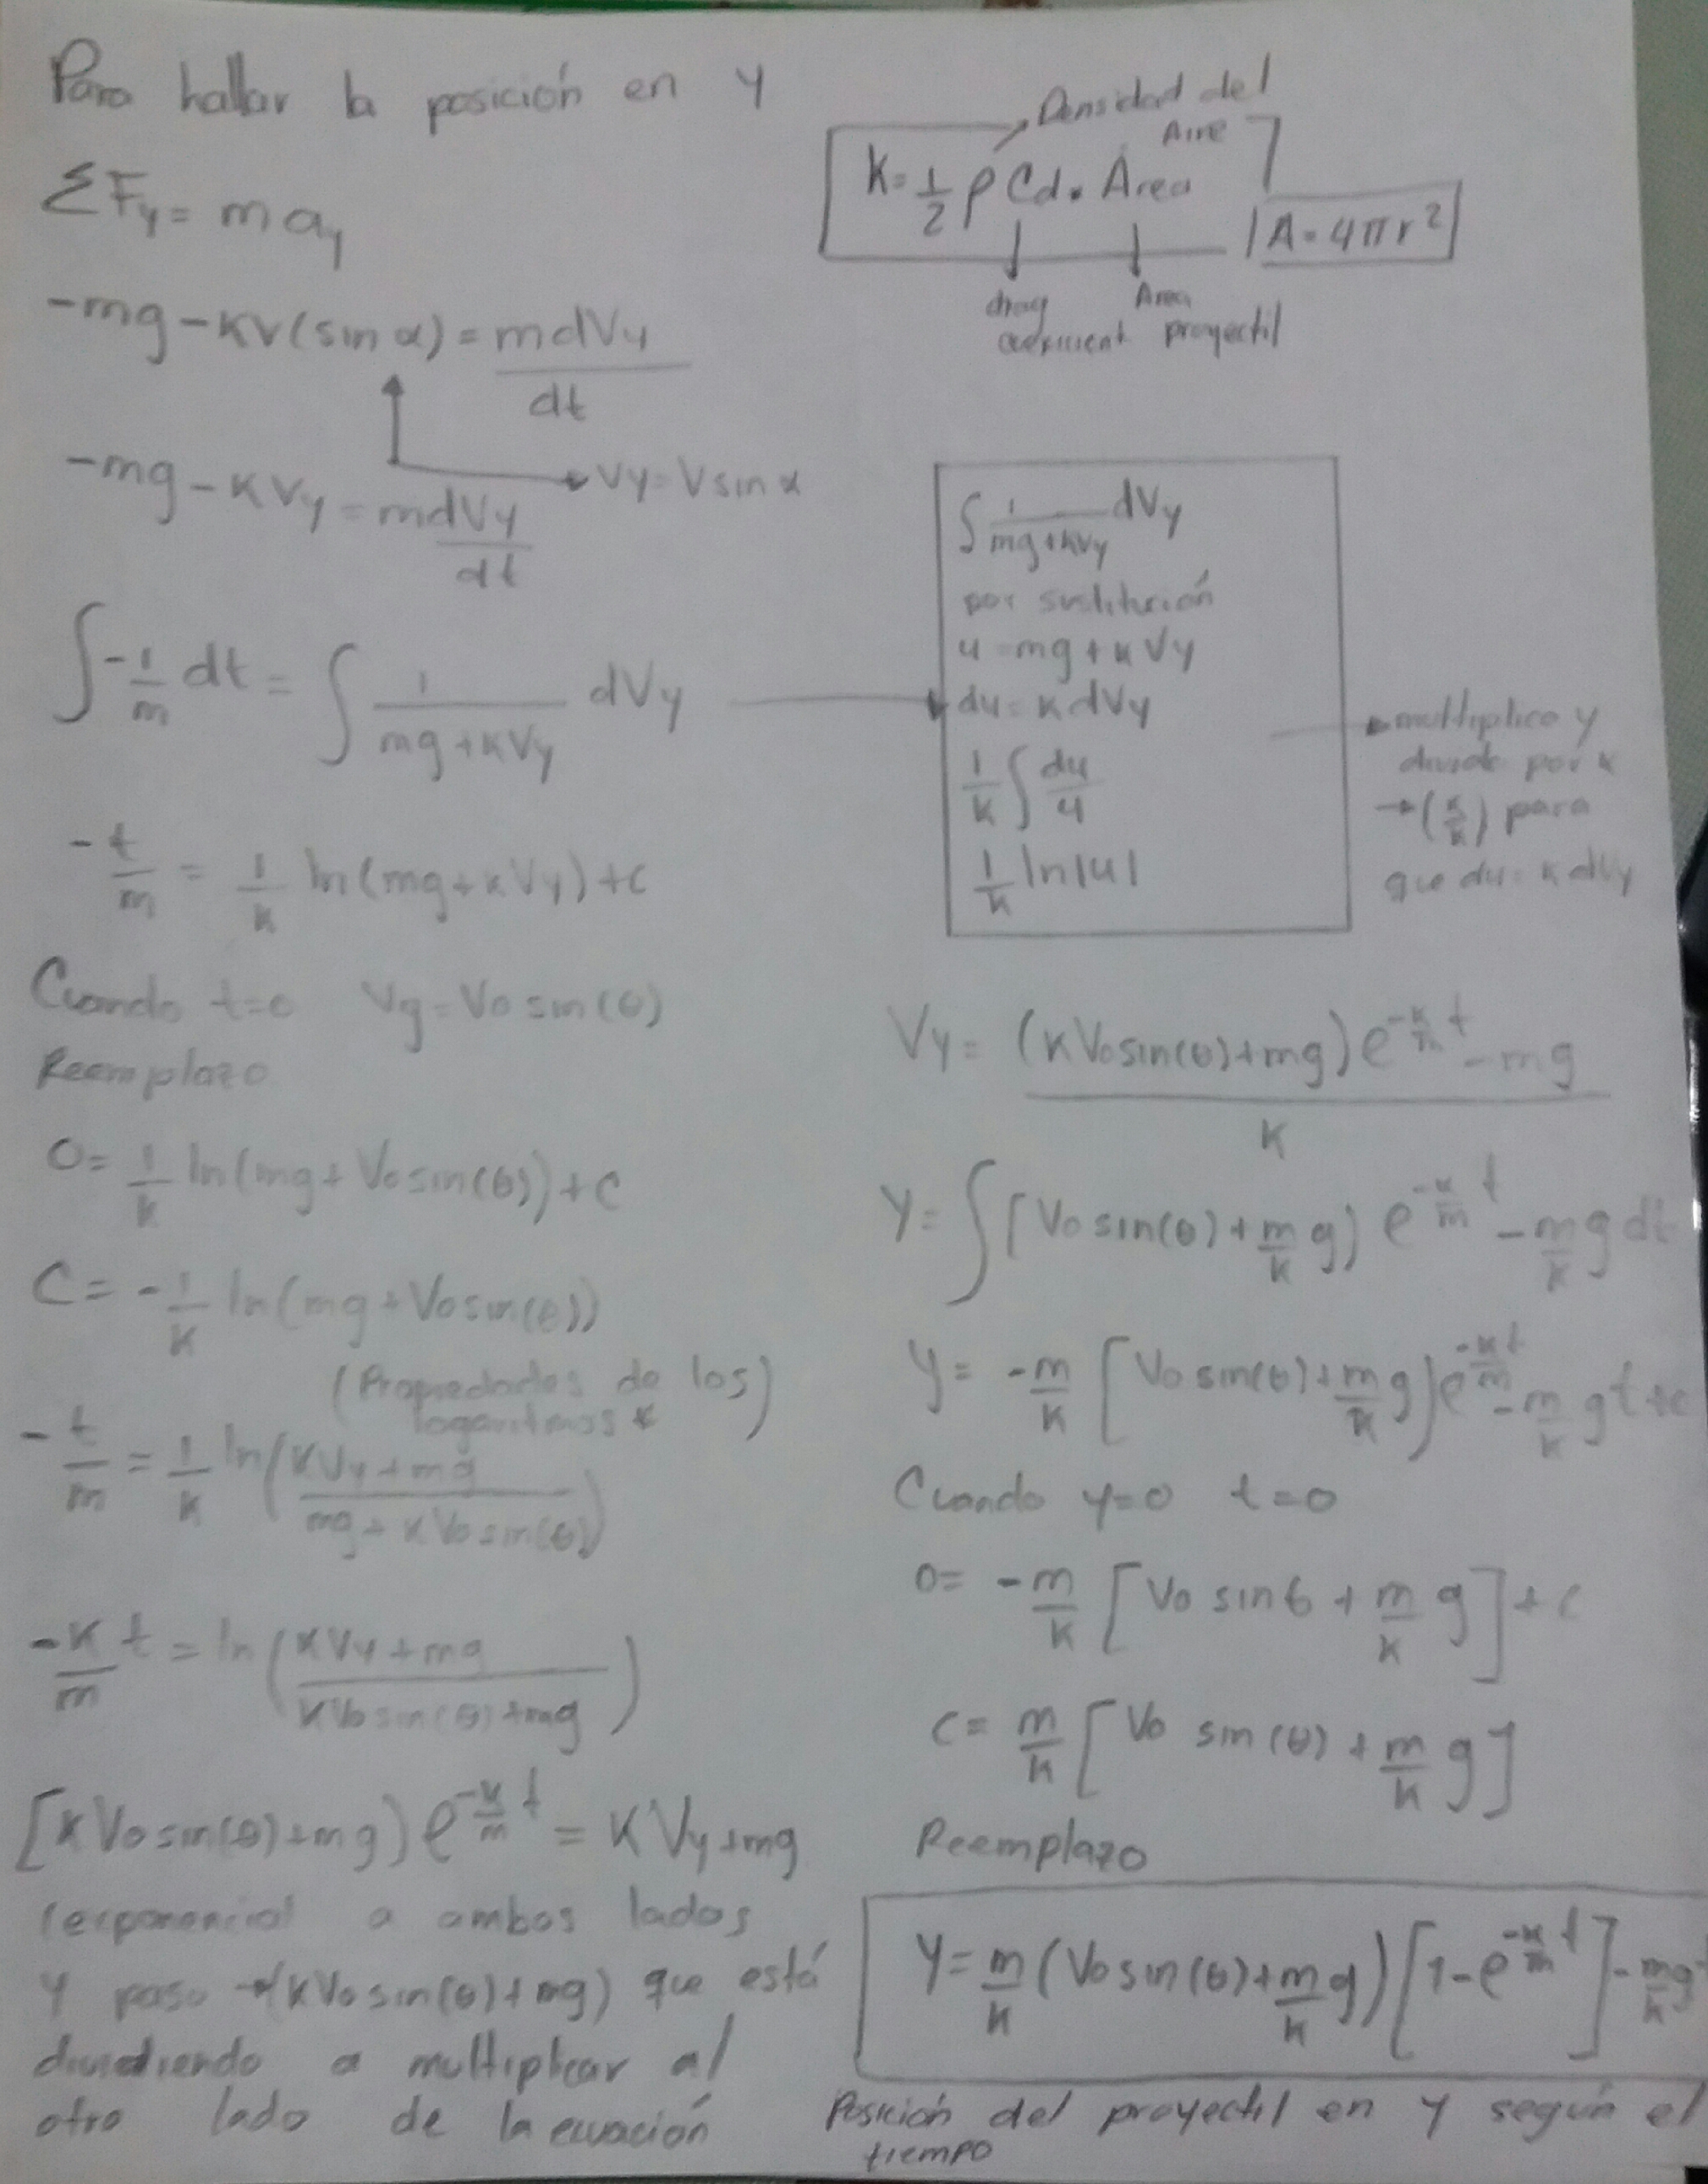 Para hallar la posición en y
ΣFy = m ay
-mg - KV(sin α) = mdVy/dt
Vy = V sin α
-mg - KVy = mdVy/dt
∫ -1/m dt = ∫ 1/(mg+KVy) dVy
-t/m = 1/K ln(mg+KVy)+c
Cuando t=0 Vy=Vo sin(θ)
Reemplazo
0= 1/K ln(mg+Vosin(θ))+c
C= -1/K ln(mg+Vosin(θ))
(Propiedades de los
logaritmos *)
-t/m = 1/K ln(KVy+mg/mg+KVosin(θ))
-K/m t = ln(KVy+mg/KVosin(θ)+mg)
[KVosin(θ)+mg) e^(-K/m t) = KVy+mg
(exponencial a ambos lados
y paso →(KVosin(θ)+mg) que está
dividiendo a multiplicar al
otro lado de la ecuación
K= 1/2 ρ Cd. Area
Densidad del
Aire
A=4πr²
drag
coefficient
Area
proyectil
∫ 1/(mg+KVy) dVy
por sustitución
u=mg+KVy
du=KdVy
1/K ∫ du/u
1/K ln|u|
multiplico y
divido por K
→(K/K) para
que du=KdVy
Vy= (KVosin(θ)+mg)e^(-K/m t) - mg / K
Y= ∫[Vosin(θ)+m/K g) e^(-K/m t) - m/K g dt
y= -m/K [Vosin(θ)+m/K g)e^(-K/m t) - m/K gt+c
Cuando y=0 t=0
0= -m/K [Vo sinθ + m/K g]+c
C= m/K [Vo sin(θ) + m/K g]
Reemplazo
Y= m/K (Vosin(θ)+m/K g)[1-e^(-K/m t)] - mg/K t
Posición del proyectil en y según el
tiempo